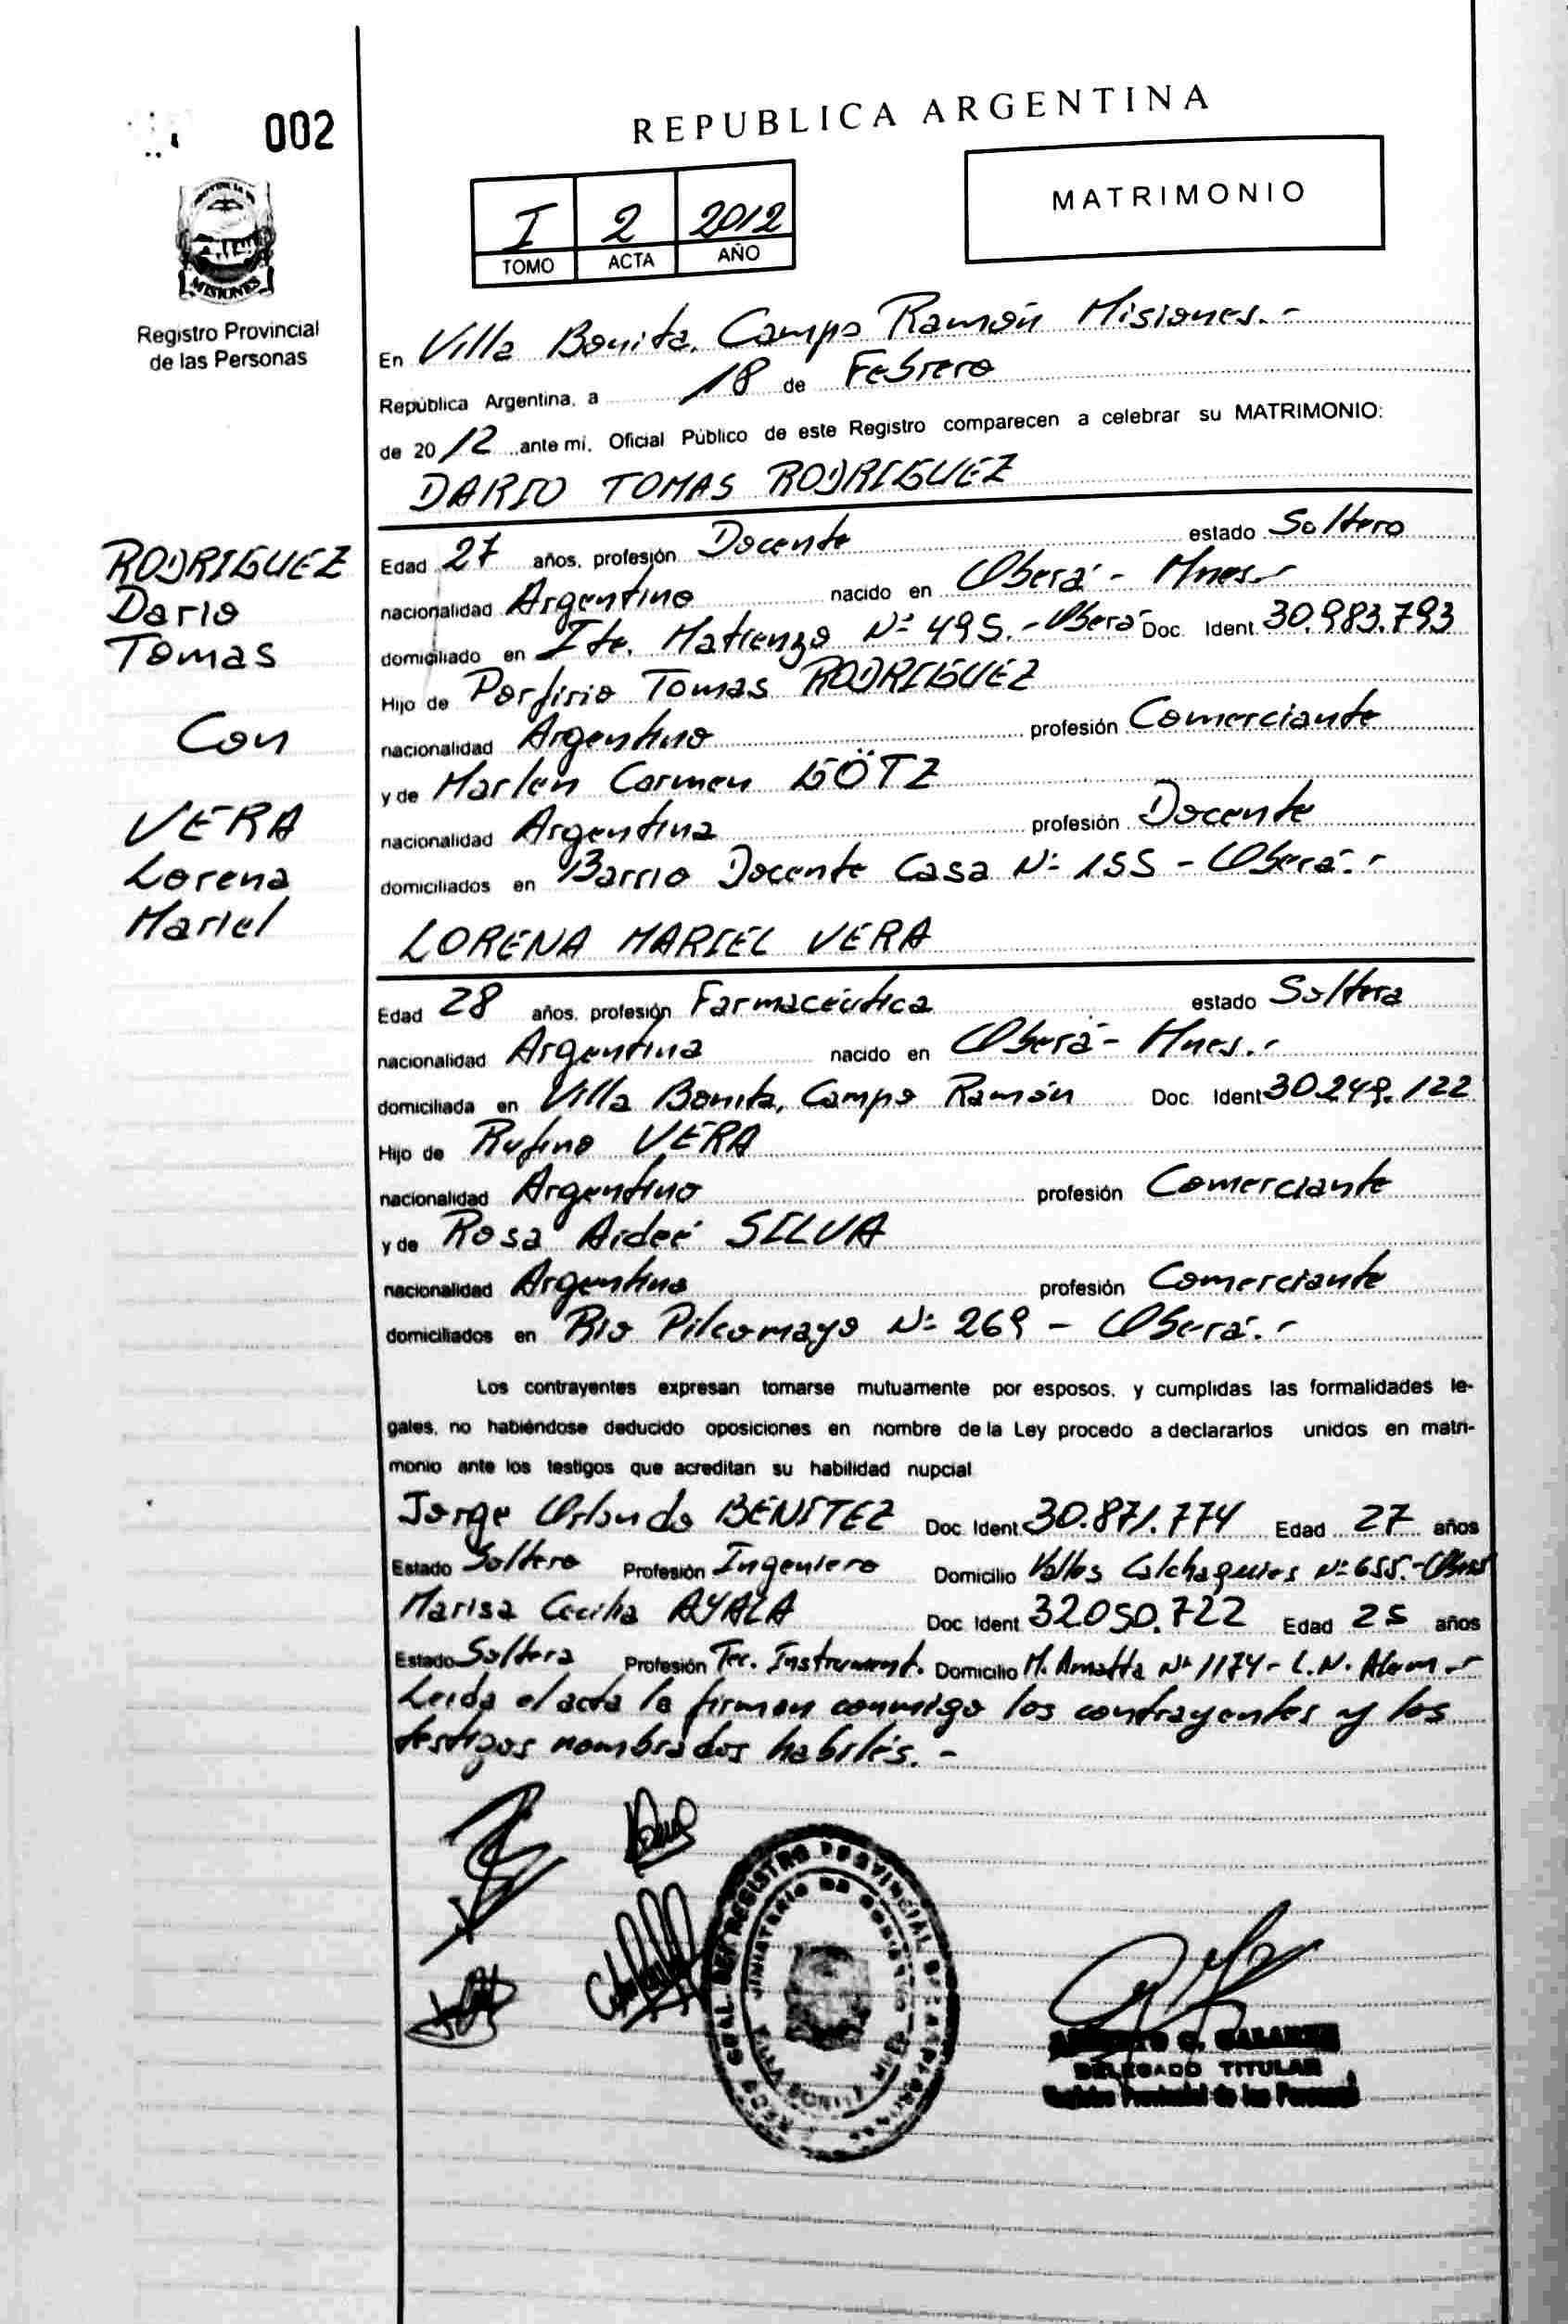 002
REPUBLICA ARGENTINA
I 2 2012
TOMO ACTA AÑO
MATRIMONIO
MISIONES
Registro Provincial
de las Personas
En Villa Bonita, Campo Ramón Misiones.-
República Argentina, a 18 de Febrero
de 2012 ante mi, Oficial Público de este Registro comparecen a celebrar su MATRIMONIO:
DARIO TOMAS RODRIGUEZ
RODRIGUEZ
Dario
Tomas
Con
VERA
Lorena
Mariel
Edad 27 años, profesión Docente estado Soltero
nacionalidad Argentino nacido en Oberá - Mnes.-
domiciliado en Tte. Matienzo Nº 495.- Oberá Doc. Ident. 30.983.793
Hijo de Porfirio Tomas RODRIGUEZ
nacionalidad Argentino profesión Comerciante
y de Marlen Carmen GÖTZ
nacionalidad Argentina profesión Docente
domiciliados en Barrio Docente Casa Nº 155 - Oberá.-
LORENA MARIEL VERA
Edad 28 años, profesión Farmacéutica estado Soltera
nacionalidad Argentina nacido en Oberá - Mnes.-
domiciliada en Villa Bonita, Campo Ramón Doc. Ident 30.249.122
Hijo de Rufino VERA
nacionalidad Argentino profesión Comerciante
y de Rosa Aideé SILVA
nacionalidad Argentina profesión Comerciante
domiciliados en Rio Pilcomayo Nº 269 - Oberá.-
Los contrayentes expresan tomarse mutuamente por esposos, y cumplidas las formalidades le-
gales, no habiéndose deducido oposiciones en nombre de la Ley procedo a declararlos unidos en matri-
monio ante los testigos que acreditan su habilidad nupcial
Jorge Orlando BENITEZ Doc. Ident. 30.871.774 Edad 27 años
Estado Soltero Profesión Ingeniero Domicilio Valles Calchaquies Nº 655.- Oberá
Marisa Cecilia AYALA Doc. Ident. 32.050.722 Edad 25 años
Estado Soltera Profesión Tec. Instrument. Domicilio M. Amatta Nº 1174 - L.N. Alem.-
Leida el acta la firman conmigo los contrayentes y los
testigos nombrados habiles.-
G. GALARZA
DELEGADO TITULAR
Registro Provincial de las Personas